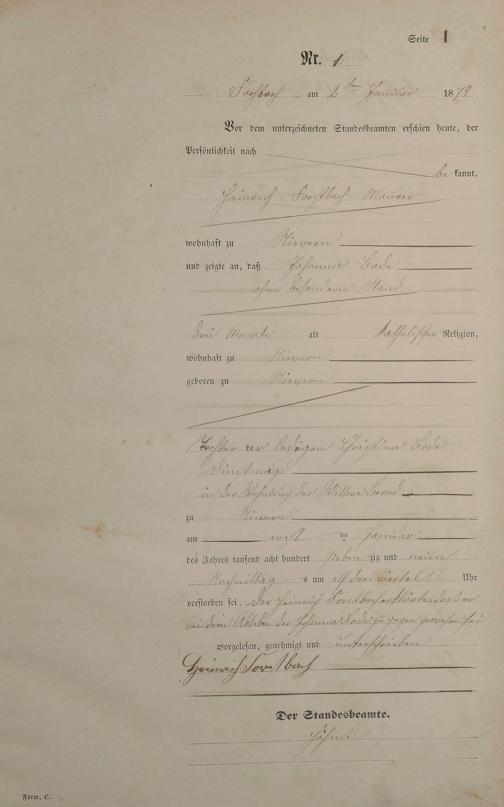 Seite 1
Nr. 1
Fachbach am 2ten Januar 1879
Vor dem unterzeichneten Standesbeamten erschien heute, der
Persönlichkeit nach
be kannt,
Heinrich Forstbach Maurer
wohnhaft zu Nievern
und zeigte an, daß Johanna Bode
ohne besonderen Stand
drei Monate alt katholischer Religion,
wohnhaft zu Nievern
geboren zu Nievern
Tochter der ledigen Christina Bode
Dienstmagd
in der Wohnung der Wittwe
zu Nievern
am erst en Januar
des Jahres tausend acht hundert sieben zig und neun
Nachmittag s um elf drei viertel Uhr
verstorben sei. Der Heinrich Forstbach erklärte, das der
bei dem Ableben der Johanna Bode zugegen gewesen sei
Vorgelesen, genehmigt und unterschrieben
Heinrich Forstbach
Der Standesbeamte.
Höhn
Form. C.